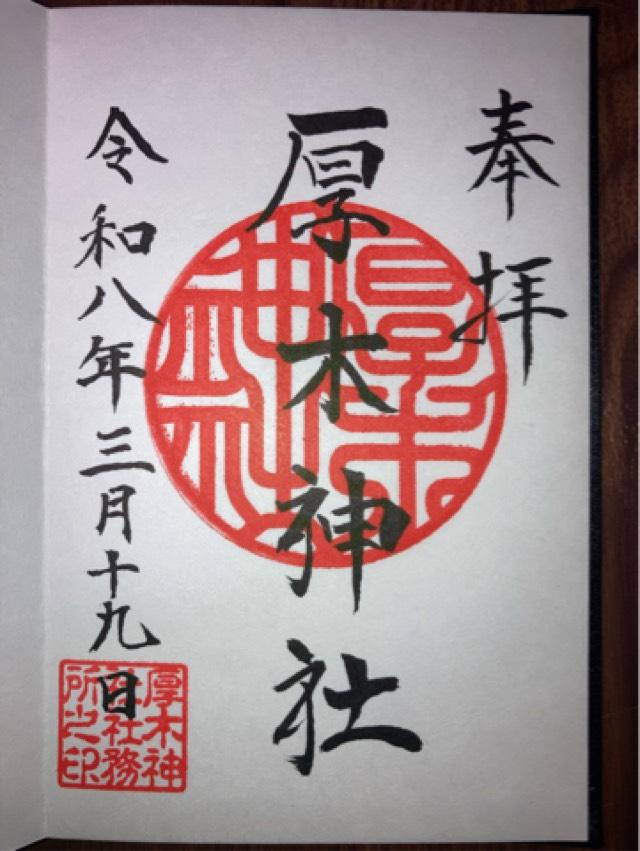 奉拝
厚木神社
令和八年三月十九日
厚木神社
厚木神
社社務
所之印